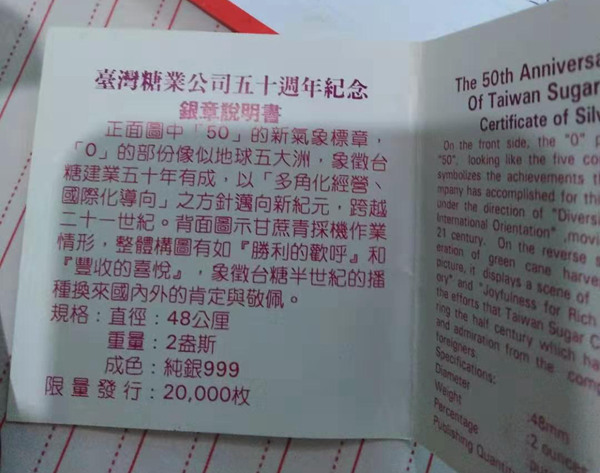 臺灣糖業公司五十週年紀念
銀章說明書
正面圖中「50」的新氣象標章，
「0」的部份像似地球五大洲，象徵台
糖建業五十年有成，以「多角化經營、
國際化導向」之方針邁向新紀元，跨越
二十一世紀。背面圖示甘蔗青採機作業
情形，整體構圖有如『勝利的歡呼』和
『豐收的喜悅』，象徵台糖半世紀的播
種換來國內外的肯定與敬佩。
規格：直徑：48公厘
重量：2盎斯
成色：純銀999
限量發行：20,000枚
The 50th Anniversa
Of Taiwan Sugar
Certificate of Silv
On the front side, the "0" p
"50", looking like the five co
symbolizes the achievements th
mpany has accomplished for this
under the direction of "Diversi
International Orientation" ,movin
21 century. On the reverse s
eration of green cane harves
picture, it displays a scene of
ry" and "Joyfulness for Rich
the efforts that Taiwan Sugar C
ring the half century which ha
and admiration from the comp
foreigners.
Specifications:
Diameter :48mm
Weight :2 ounces
Percentage
Publishing Quant